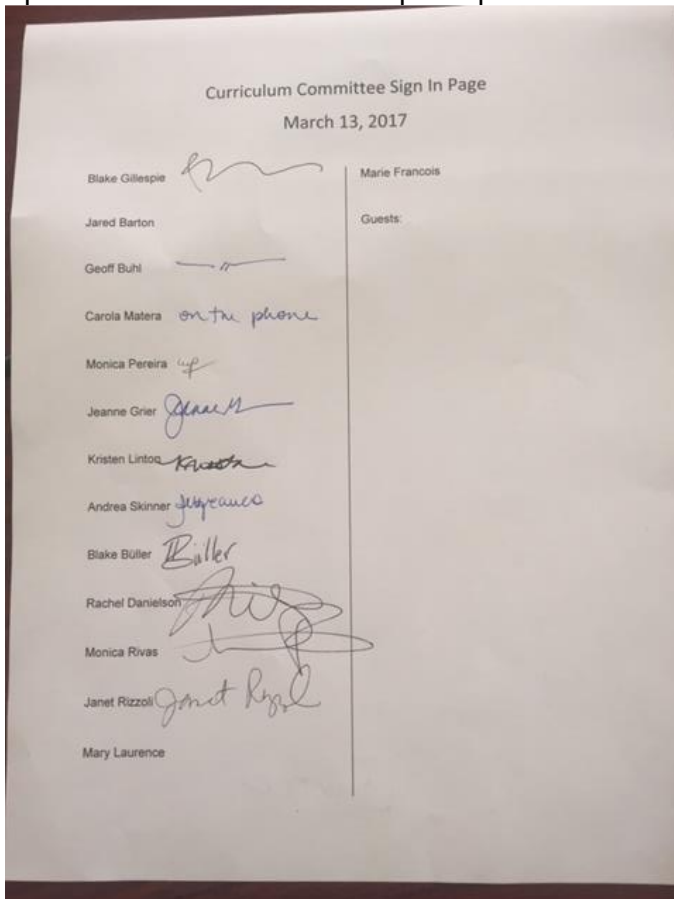 Curriculum Committee Sign In Page
March 13, 2017
Blake Gillespie
Jared Barton
Geoff Buhl
Carola Matera on the phone
Monica Pereira
Jeanne Grier
Kristen Linton
Andrea Skinner
Blake Büller Büller
Rachel Danielson
Monica Rivas
Janet Rizzoli Janet
Mary Laurence
Marie Francois
Guests: